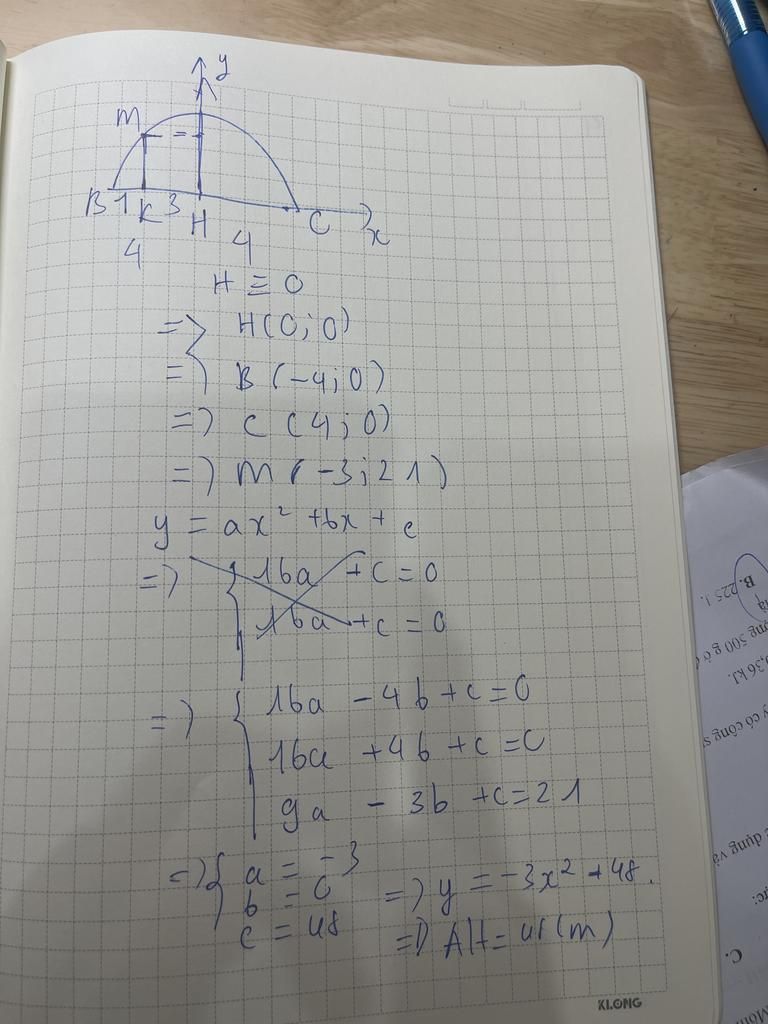 y
A
M
B 1 K 3 H C x
4 4
H ≡ O
=> H(0; 0)
=> B (-4; 0)
=> C (4; 0)
=> M (-3; 21)
y = ax² + bx + c
=> { 16a + c = 0
16a + c = 0
=> { 16a - 4b + c = 0
16a + 4b + c = 0
9a - 3b + c = 21
=> { a = -3
b = 0 => y = -3x² + 48.
c = 48 => AH = 48 (m)
KLONG
B. 225 J.
500 g ở
0,36 kJ.
y có công s
dụng và
C.